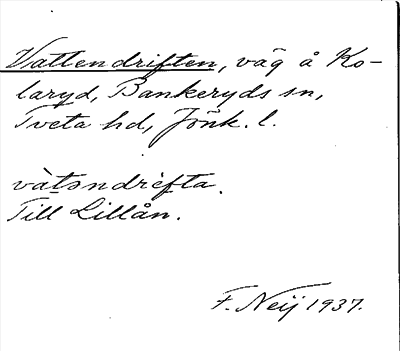 Vattendriften, väg å Ko-
laryd, Bankeryds sn,
Tveta hd, Jönk. l.
vàtəndrèfta.
Till Lillån.
F. Neij 1937.